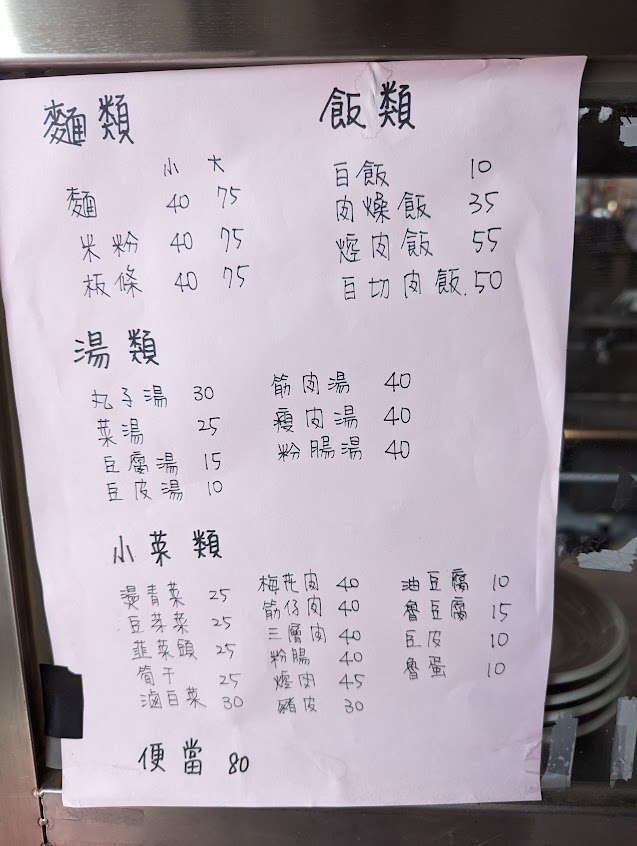 麵類
小 大
麵 40 75
米粉 40 75
板條 40 75
飯類
白飯 10
肉燥飯 35
焢肉飯 55
白切肉飯.50
湯類
丸子湯 30
菜湯 25
豆腐湯 15
豆皮湯 10
筋肉湯 40
瘦肉湯 40
粉腸湯 40
小菜類
燙青菜 25
豆芽菜 25
韮菜頭 25
筍干 25
滷白菜 30
梅花肉 40
筋仔肉 40
三層肉 40
粉腸 40
焢肉 45
豬皮 30
油豆腐 10
魯豆腐 15
豆皮 10
魯蛋 10
便當 80